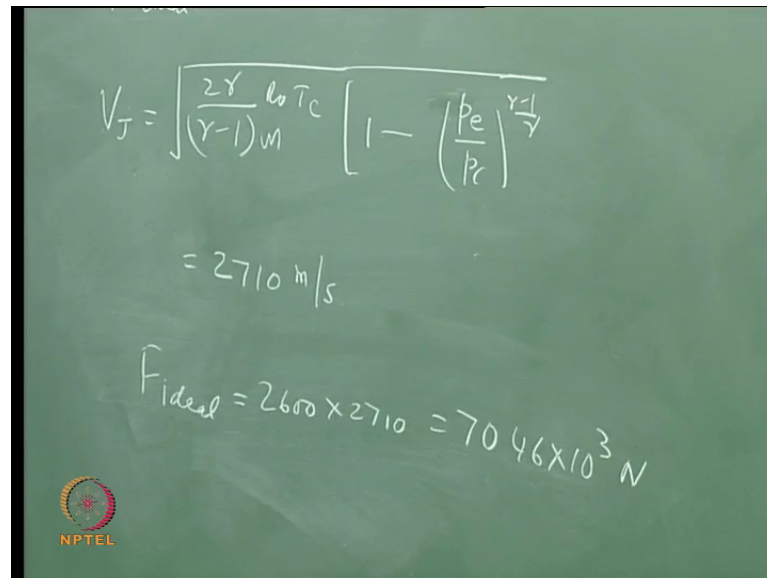 V_J = √(2γ/((γ-1)m) R₀ T_c [1 - (p_e/p_c)^((γ-1)/γ)
= 2710 m/s
F_ideal = 2600 × 2710 = 7046×10³ N
NPTEL